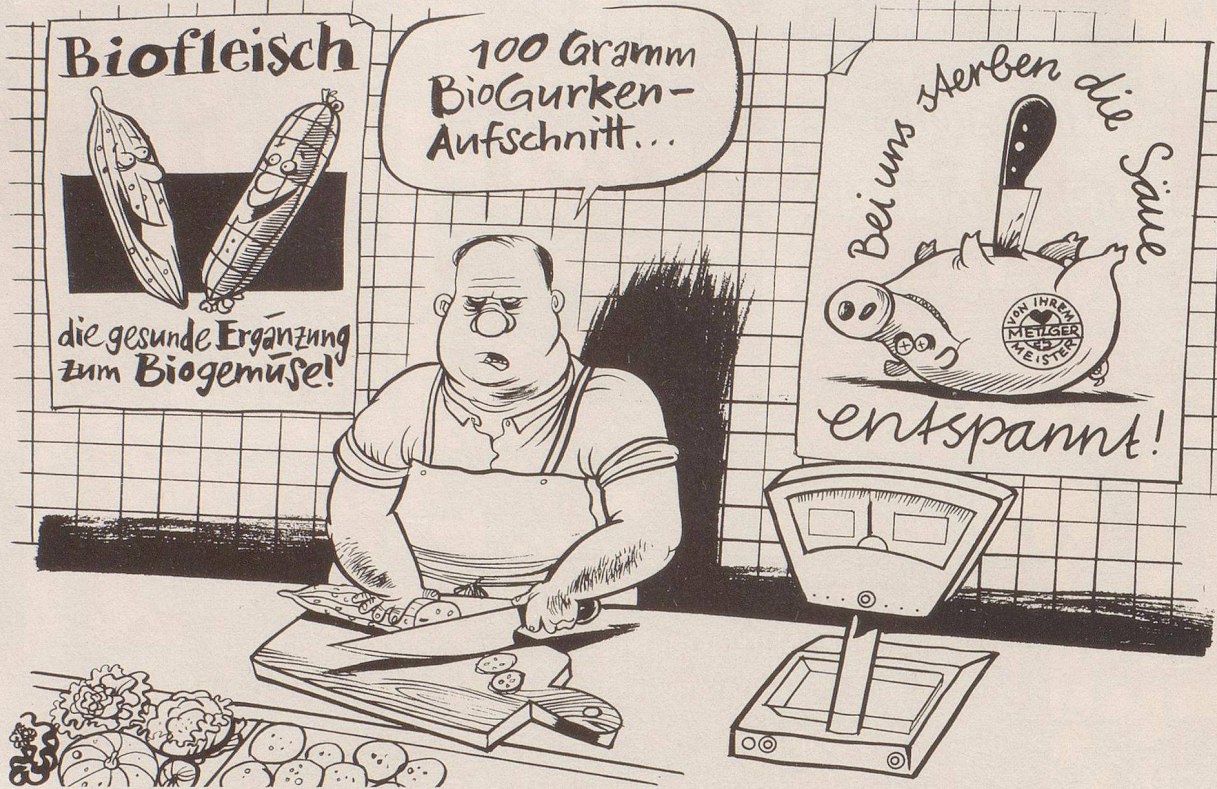 Biofleisch
die gesunde Ergänzung
zum Biogemüse!
100 Gramm
BioGurken-
Aufschnitt...
Bei uns sterben die Säue
VON IHREM
METZGER
MEISTER
entspannt!